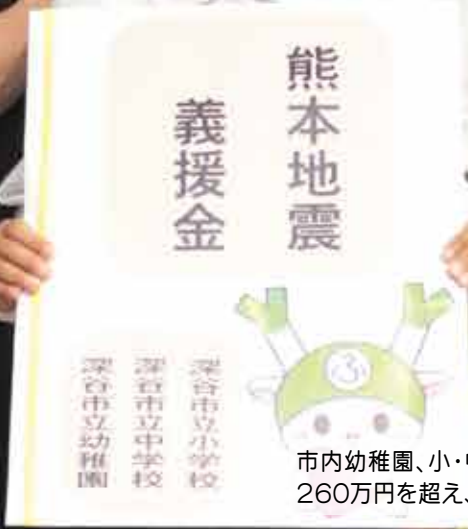 熊本地震
義援金
深谷市立小学校
深谷市立中学校
深谷市立幼稚園
ふ
市内幼稚園、小・
260万円を超え、